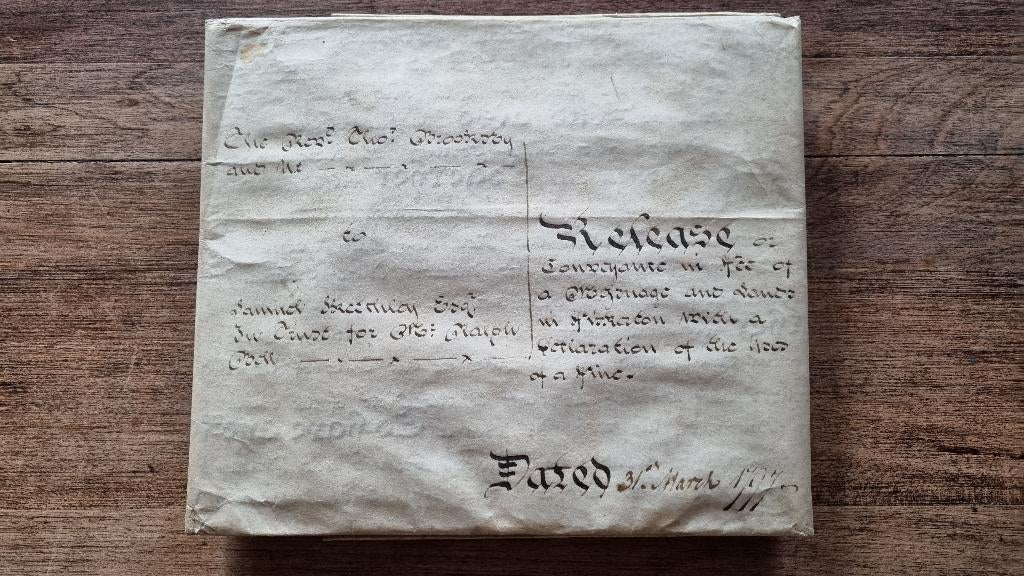 The Revd. Thos. Brooksby
and Ux
to
Samuel Esqr.
In Trust for Mr. Ralph
Bell
Release or
Conveyance in Fee of
a Messuage and Lands
in with a
Declaration of the Uses
of a Fine.
Dated 31st March 1797.